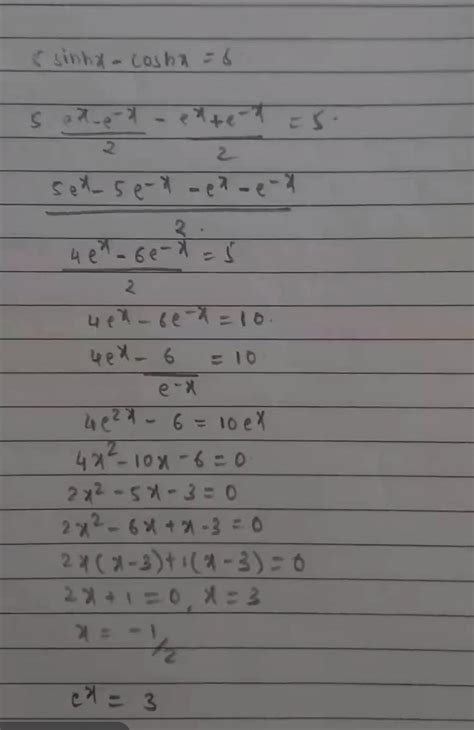 5 sinhx - coshx = 5
5 (e^x - e^-x)/2 - (e^x + e^-x)/2 = 5.
(5e^x - 5e^-x - e^x - e^-x)/2.
(4e^x - 6e^-x)/2 = 5
4e^x - 6e^-x = 10.
4e^x - 6/e^-x = 10
4e^2x - 6 = 10e^x
4x^2 - 10x - 6 = 0
2x^2 - 5x - 3 = 0
2x^2 - 6x + x - 3 = 0
2x(x-3)+1(x-3) = 0
2x + 1 = 0, x = 3
x = -1/2
e^x = 3